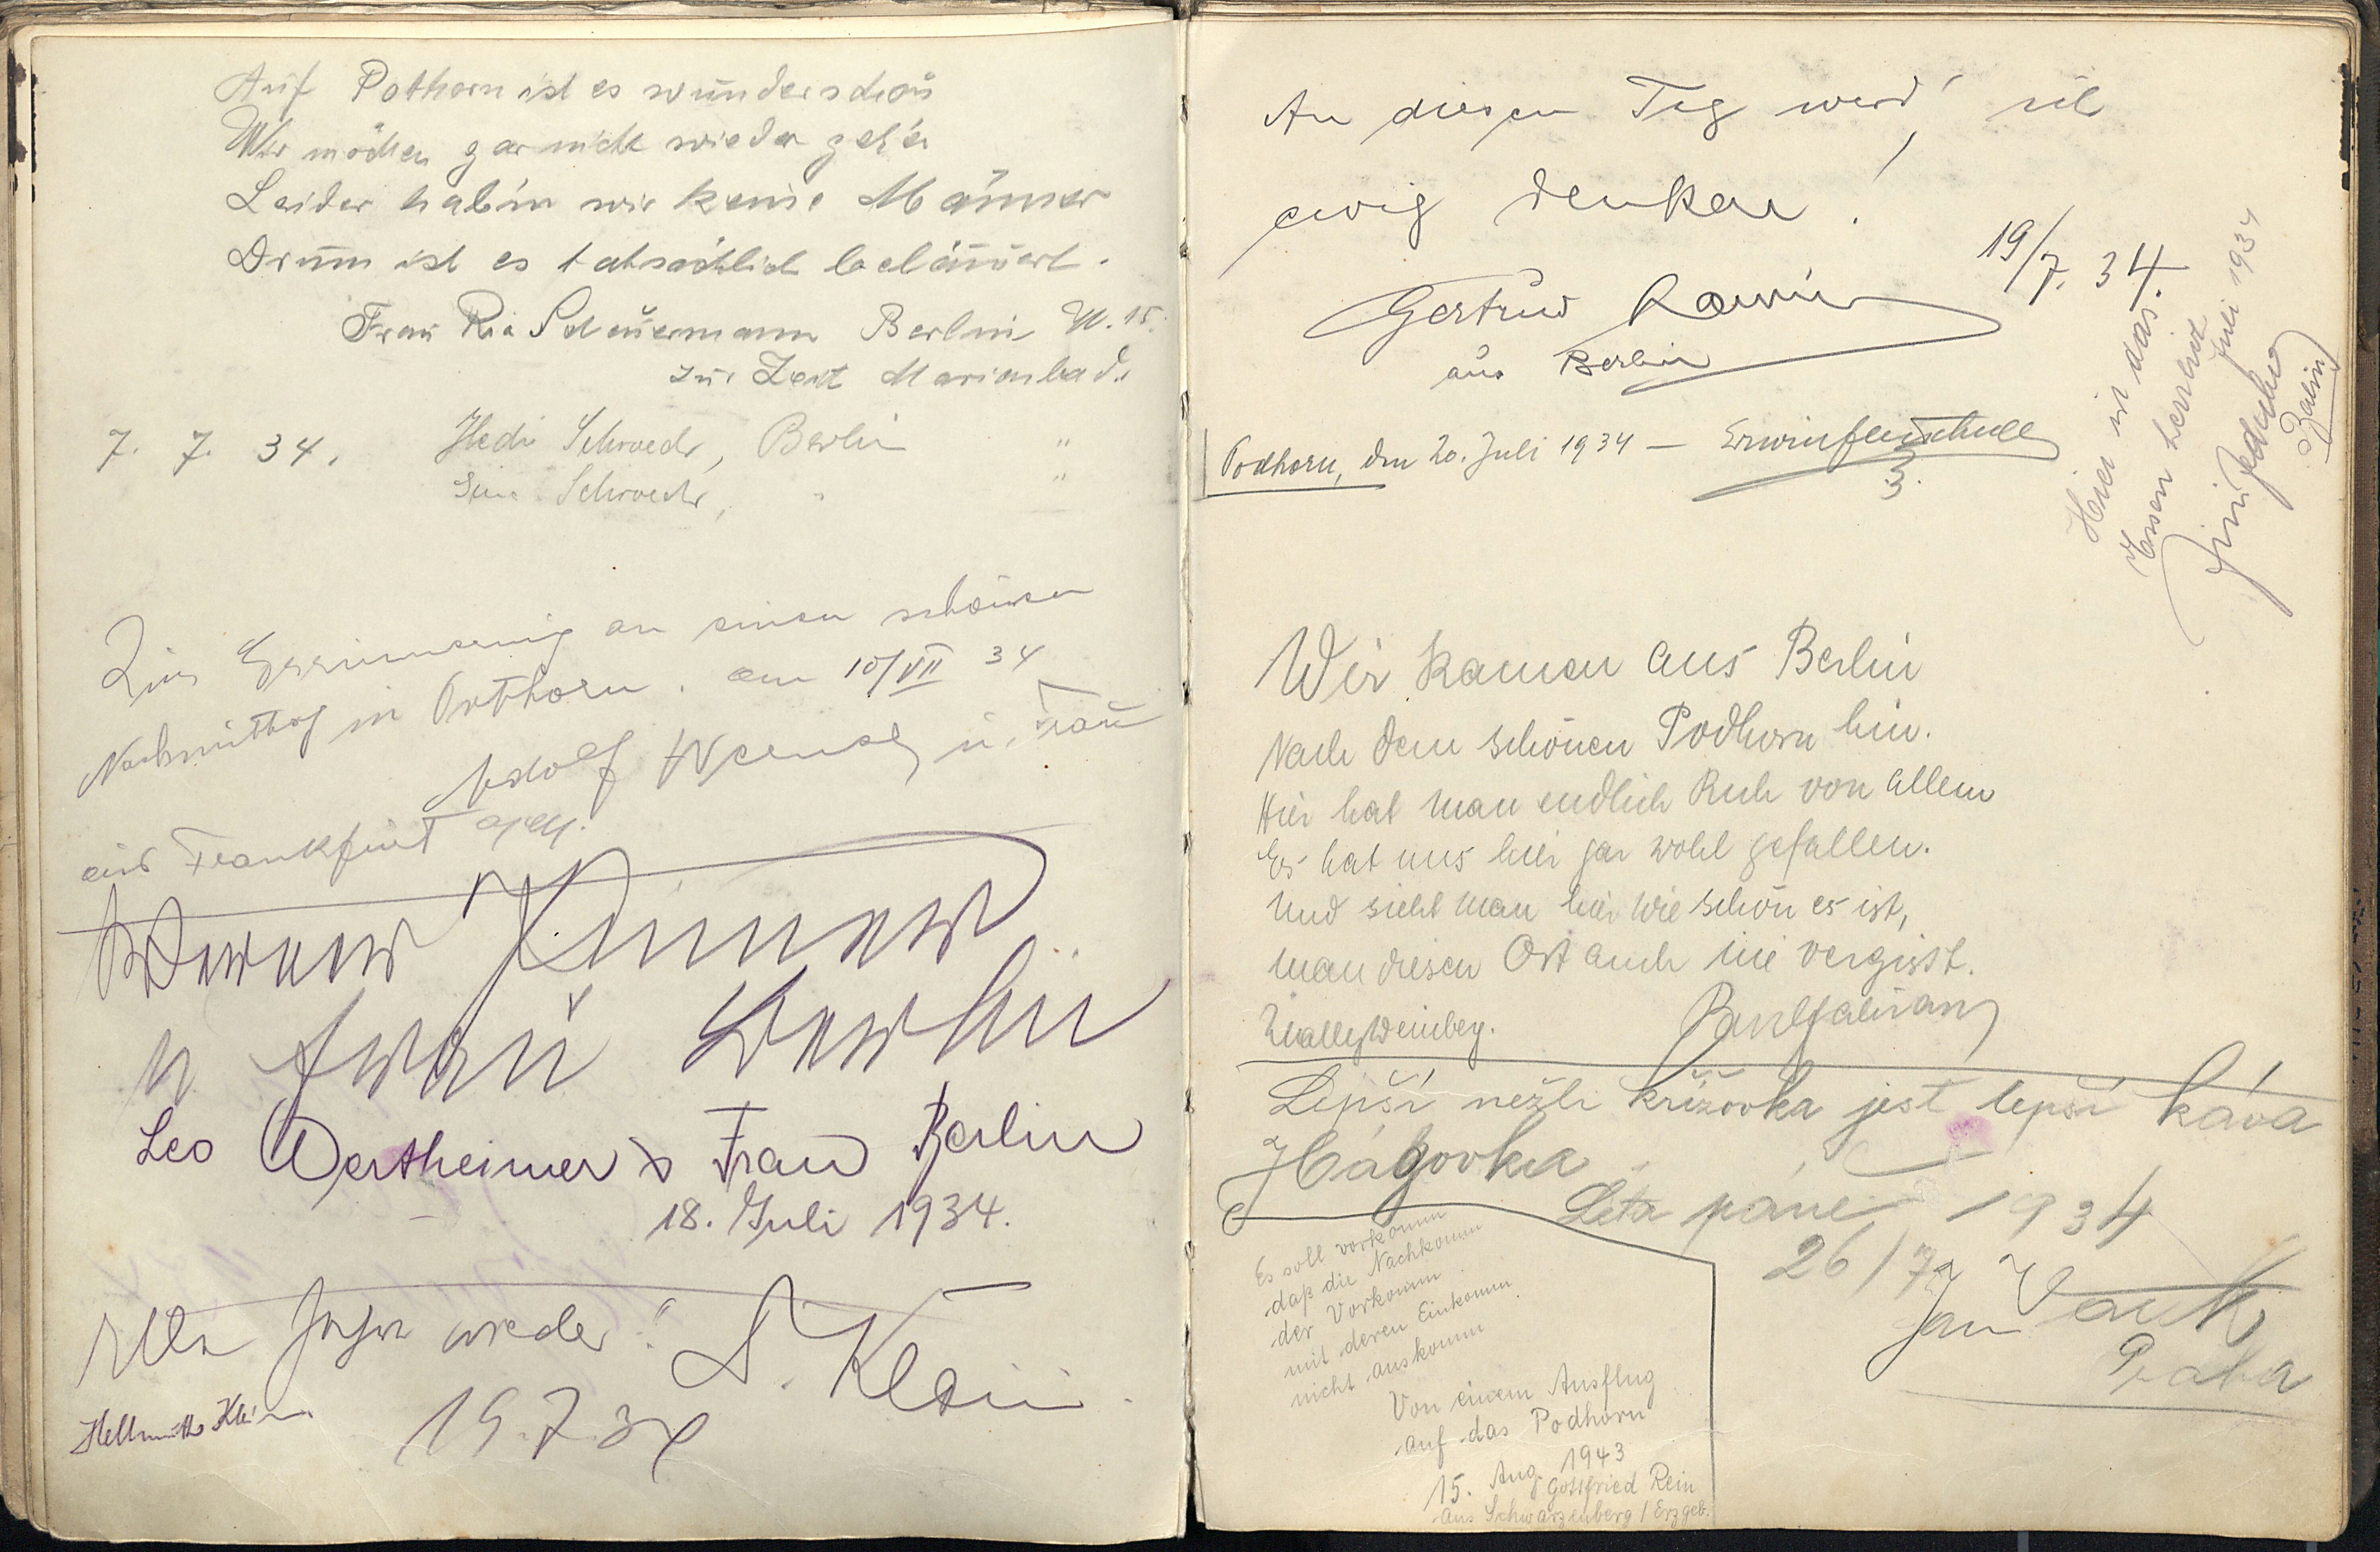 Auf Pothorn ist es wunderschön
Wir möchen gar nicht wieder geh'n
Leider hab'n wir keine Männer
Drum ist es tatsächlich belämert.
Frau Ria Scheuermann Berlin W. 15.
zur Zeit Marienbad.
7. 7. 34. Hedi Schroedr, Berlin "
Schroedr, " "
Zur Errinnerung an einen schönen
Nachmittag in Potthorn. am 10/VII 34
Adolf u. Frau
aus Frankfurt a/M.
Werner
u Frau Berlin
Leo Wertheimer & Frau Berlin
18. Juli 1934.
Alle Jahre wieder! S. Klein
Hellmuth Klein 19.7.34
An diesen Tag werd' ich
ewig denken!
19/7. 34.
Gertrud
aus Berlin
Podhorn, den 20. Juli 1934 –
Hier ist das
Essen herrlich
Juli 1934
Berlin
Wir kamen aus Berlin
Nach dem schönen Podhorn hin.
Hier hat man endlich Ruh von allem
Es hat uns hier gar wohl gefallen.
Und sieht man hier wie schön es ist,
man diesen Ort auch nie vergisst.
Wally Weinberg.
Lepší nežli křížovka jest lepší káva
Hágovka
Léta páně 1934
26/7
Jan
Praha
Es soll vorkomm
daß die Nachkomm
der Vorkomm
mit deren Einkomm.
nicht auskomm
Von einem Ausflug
auf das Podhorn
15. Aug. 1943
Gottfried Rein
aus Schwarzenberg / Erzgeb.